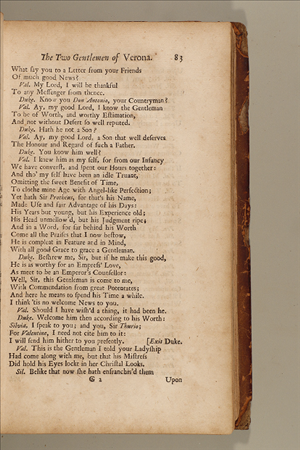 The Two Gentlemen of Verona. 83
What say you to a Letter from your Friends
Of much good News?
Val. My Lord, I will be thankful
To any Messenger from thence.
Duke. Know you Don Antonio, your Countryman?
Val. Ay, my good Lord, I know the Gentleman
To be of Worth, and worthy Estimation,
And not without Desert so well reputed.
Duke. Hath he not a Son?
Val. Ay, my good Lord, a Son that well deserves
The Honour and Regard of such a Father.
Duke. You know him well?
Val. I knew him as my self, for from our Infancy
We have converst, and spent our Hours together:
And tho' my self have been an idle Truant,
Omitting the sweet Benefit of Time,
To cloathe mine Age with Angel-like Perfection;
Yet hath Sir Protheus, for that's his Name,
Made Use and fair Advantage of his Days:
His Years but young, but his Experience old;
His Head unmellow'd, but his Judgment ripe;
And in a Word, for far behind his Worth
Come all the Praises that I now bestow,
He is compleat in Feature and in Mind,
With all good Grace to grace a Gentleman.
Duke. Beshrew me, Sir, but if he make this good,
He is as worthy for an Empress' Love,
As meet to be an Emperor's Counsellor:
Well, Sir, this Gentleman is come to me,
With Commendation from great Potentates;
And here he means to spend his Time a while.
I think 'tis no welcome News to you.
Val. Should I have wish'd a thing, it had been he.
Duke. Welcome him then according to his Worth:
Silvia, I speak to you; and you, Sir Thurio;
For Valentine, I need not cite him to it:
I will send him hither to you presently. [Exit Duke.
Val. This is the Gentleman I told your Ladyship
Had come along with me, but that his Mistress
Did hold his Eyes lockt in her Christal Looks.
Sil. Belike that now she hath enfranchis'd them
G 2 Upon